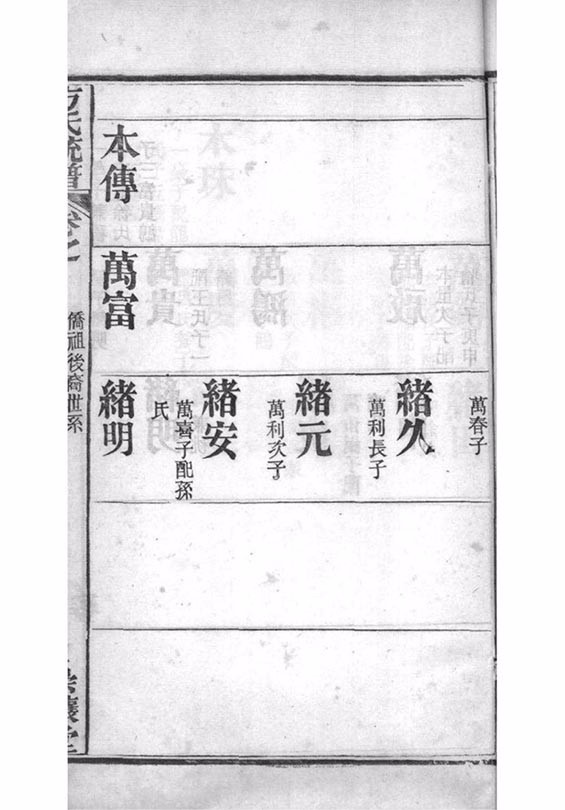 本傳
萬富
萬春子
緒久
萬利長子
緒元
萬利次子
緒安
萬喜子配孫
氏
緒明
方氏統譜
卷之
僑祖後裔世系